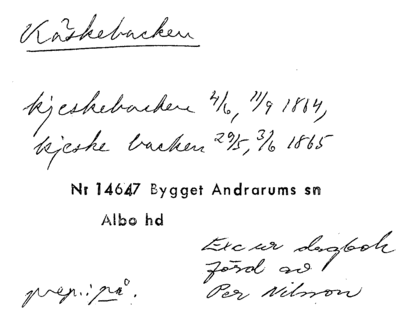 Kåskebacken
kjeskebacken 4/6, 11/9 1864,
kjeske backen 29/5, 3/6 1865
Nr 14647 Bygget Andrarums sn
Albo hd
Exc ur dagbok
förd av
prep.: på. Per Nilsson